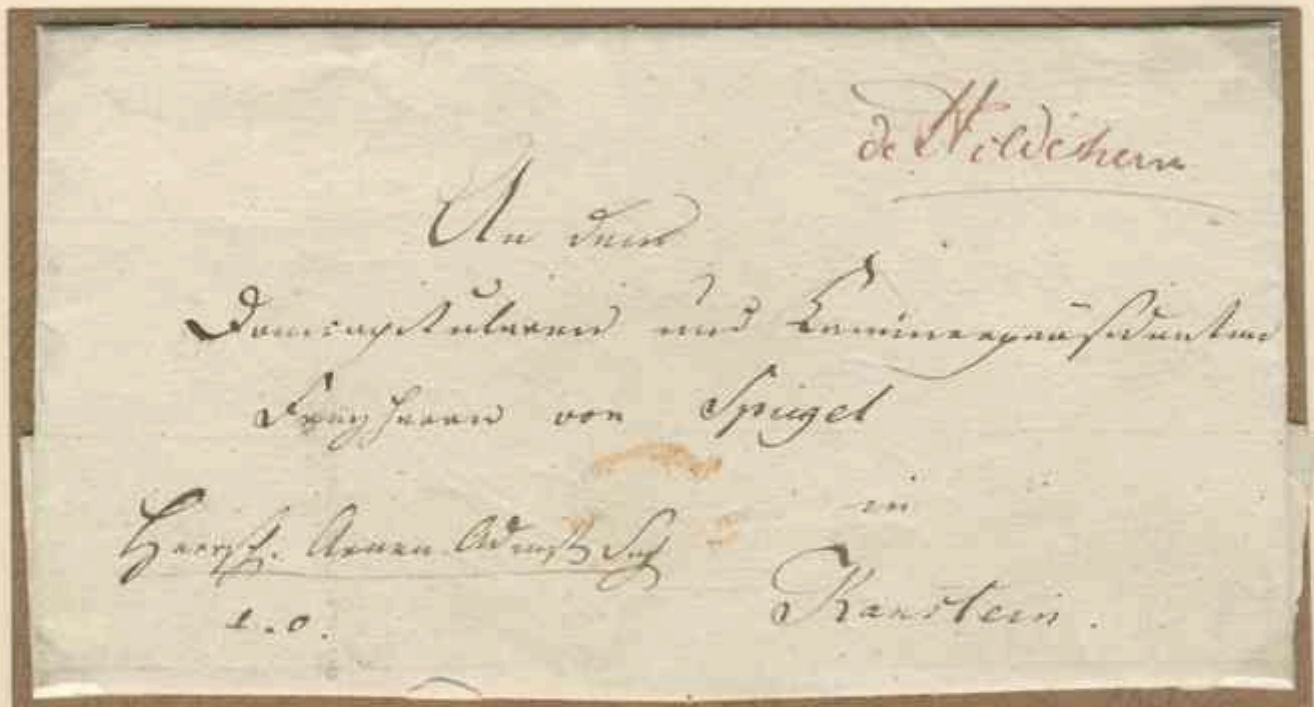 de Hildesheim
An den
Domcapitularen und Cammerpräsidenten
Freyherrn von Spiegel
in
Herrsch. Armen Admst Sach
Kanstein.
e.o.